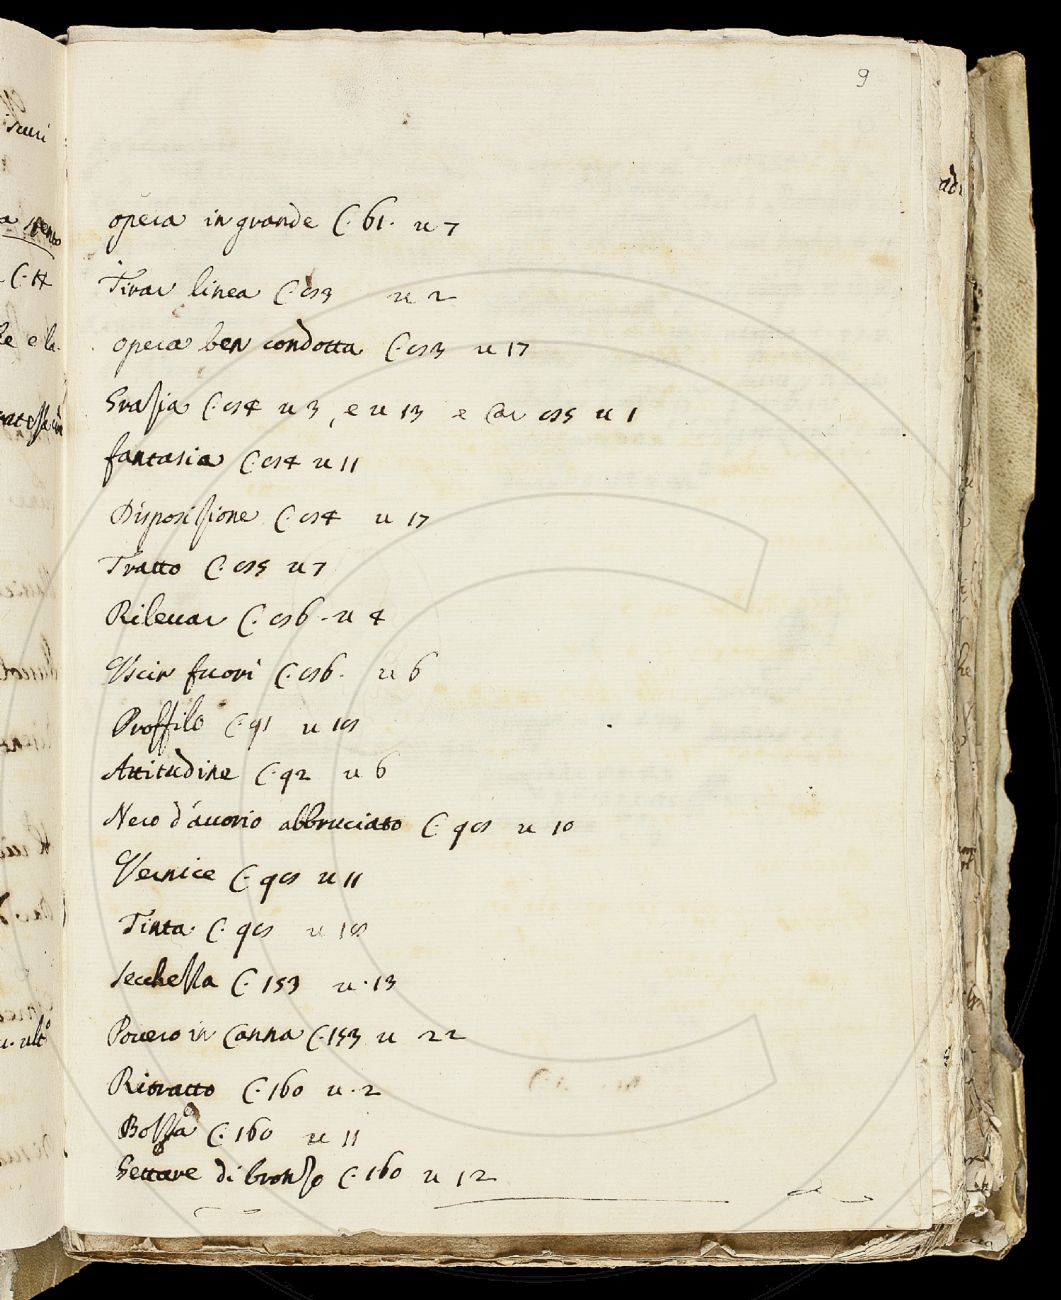 9
opera in grande C. 61. u 7
Tirar linea C. 83 u 2
opera ben condotta C. 83 u 17
Grazia C. 84 u 3, e u 13 e Car 85 u 1
fantasia C. 84 u 11
Disposizione C. 84 u 17
Tratto C. 85 u 7
Rileuar C. 86 - u 4
Vscir fuori C. 86. u 6
Proffilo C. 91 u 18
Attitudine C. 92 u 6
Nero d'auorio abbruciato C. 98 u 10
Vernice C. 98 u 11
Tinta C. 98 u 18
Secchezza C. 153 u. 13
Pouero in Canna C. 153 u 22
Ritratto C. 160 u. 2
Bozza C. 160 u 11
Gettare di bronzo C. 160 u 12